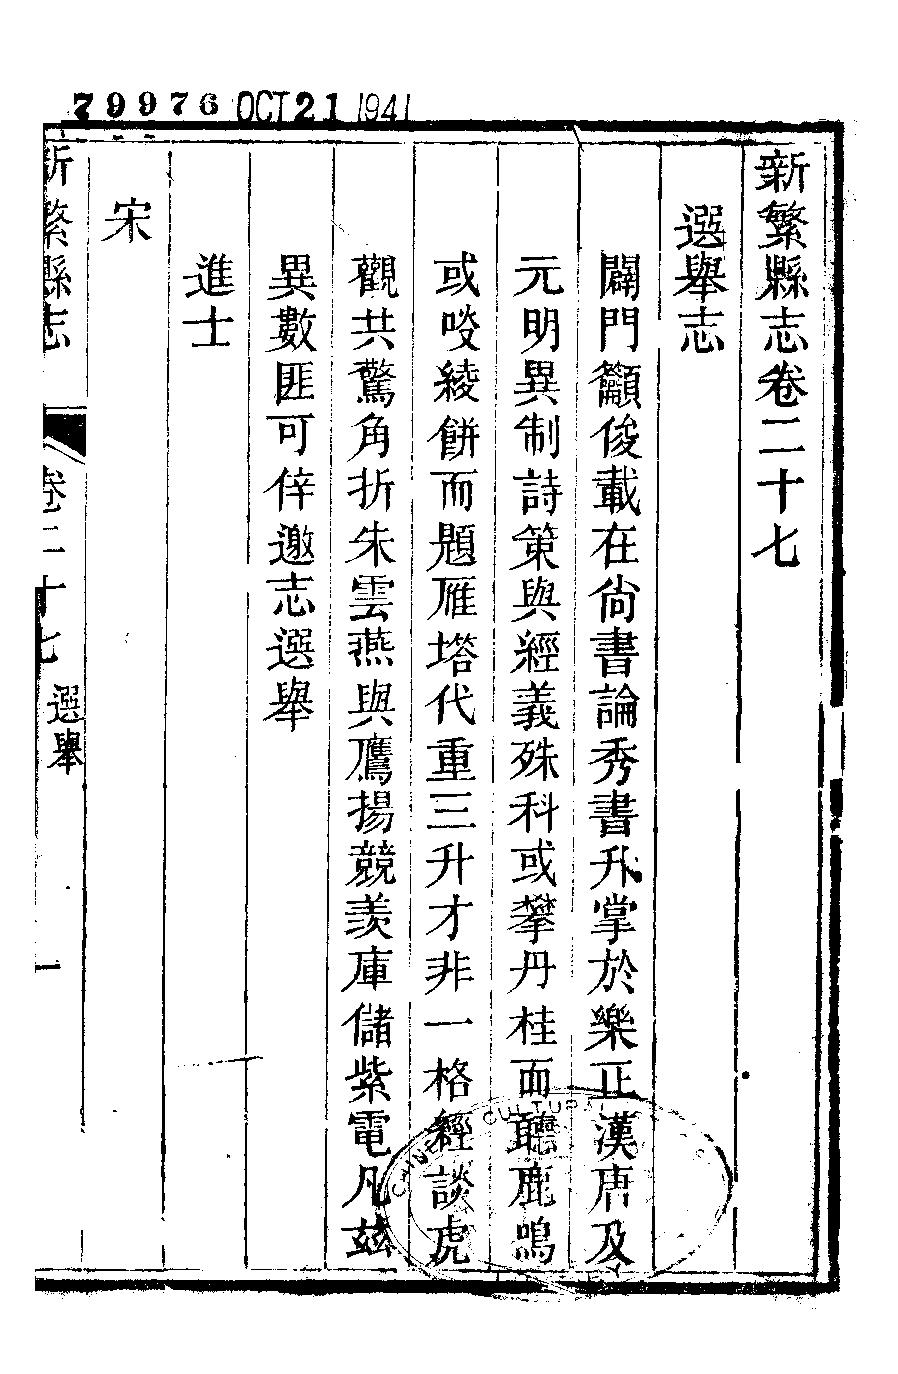 79976 OCT 21 1941
新繁縣志卷二十七
選舉志
闢門籲俊載在尙書論秀書升掌於樂正漢唐及
元明異制詩策與經義殊科或攀丹桂而聽鹿鳴
或咬綾餅而題雁塔代重三升才非一格經談虎
觀共驚角折朱雲燕與鷹揚競羨庫儲紫電凡茲
異數匪可倖邀志選舉
進士
宋
新繁縣志
卷二十七
選舉
一
CHINE CULTURA